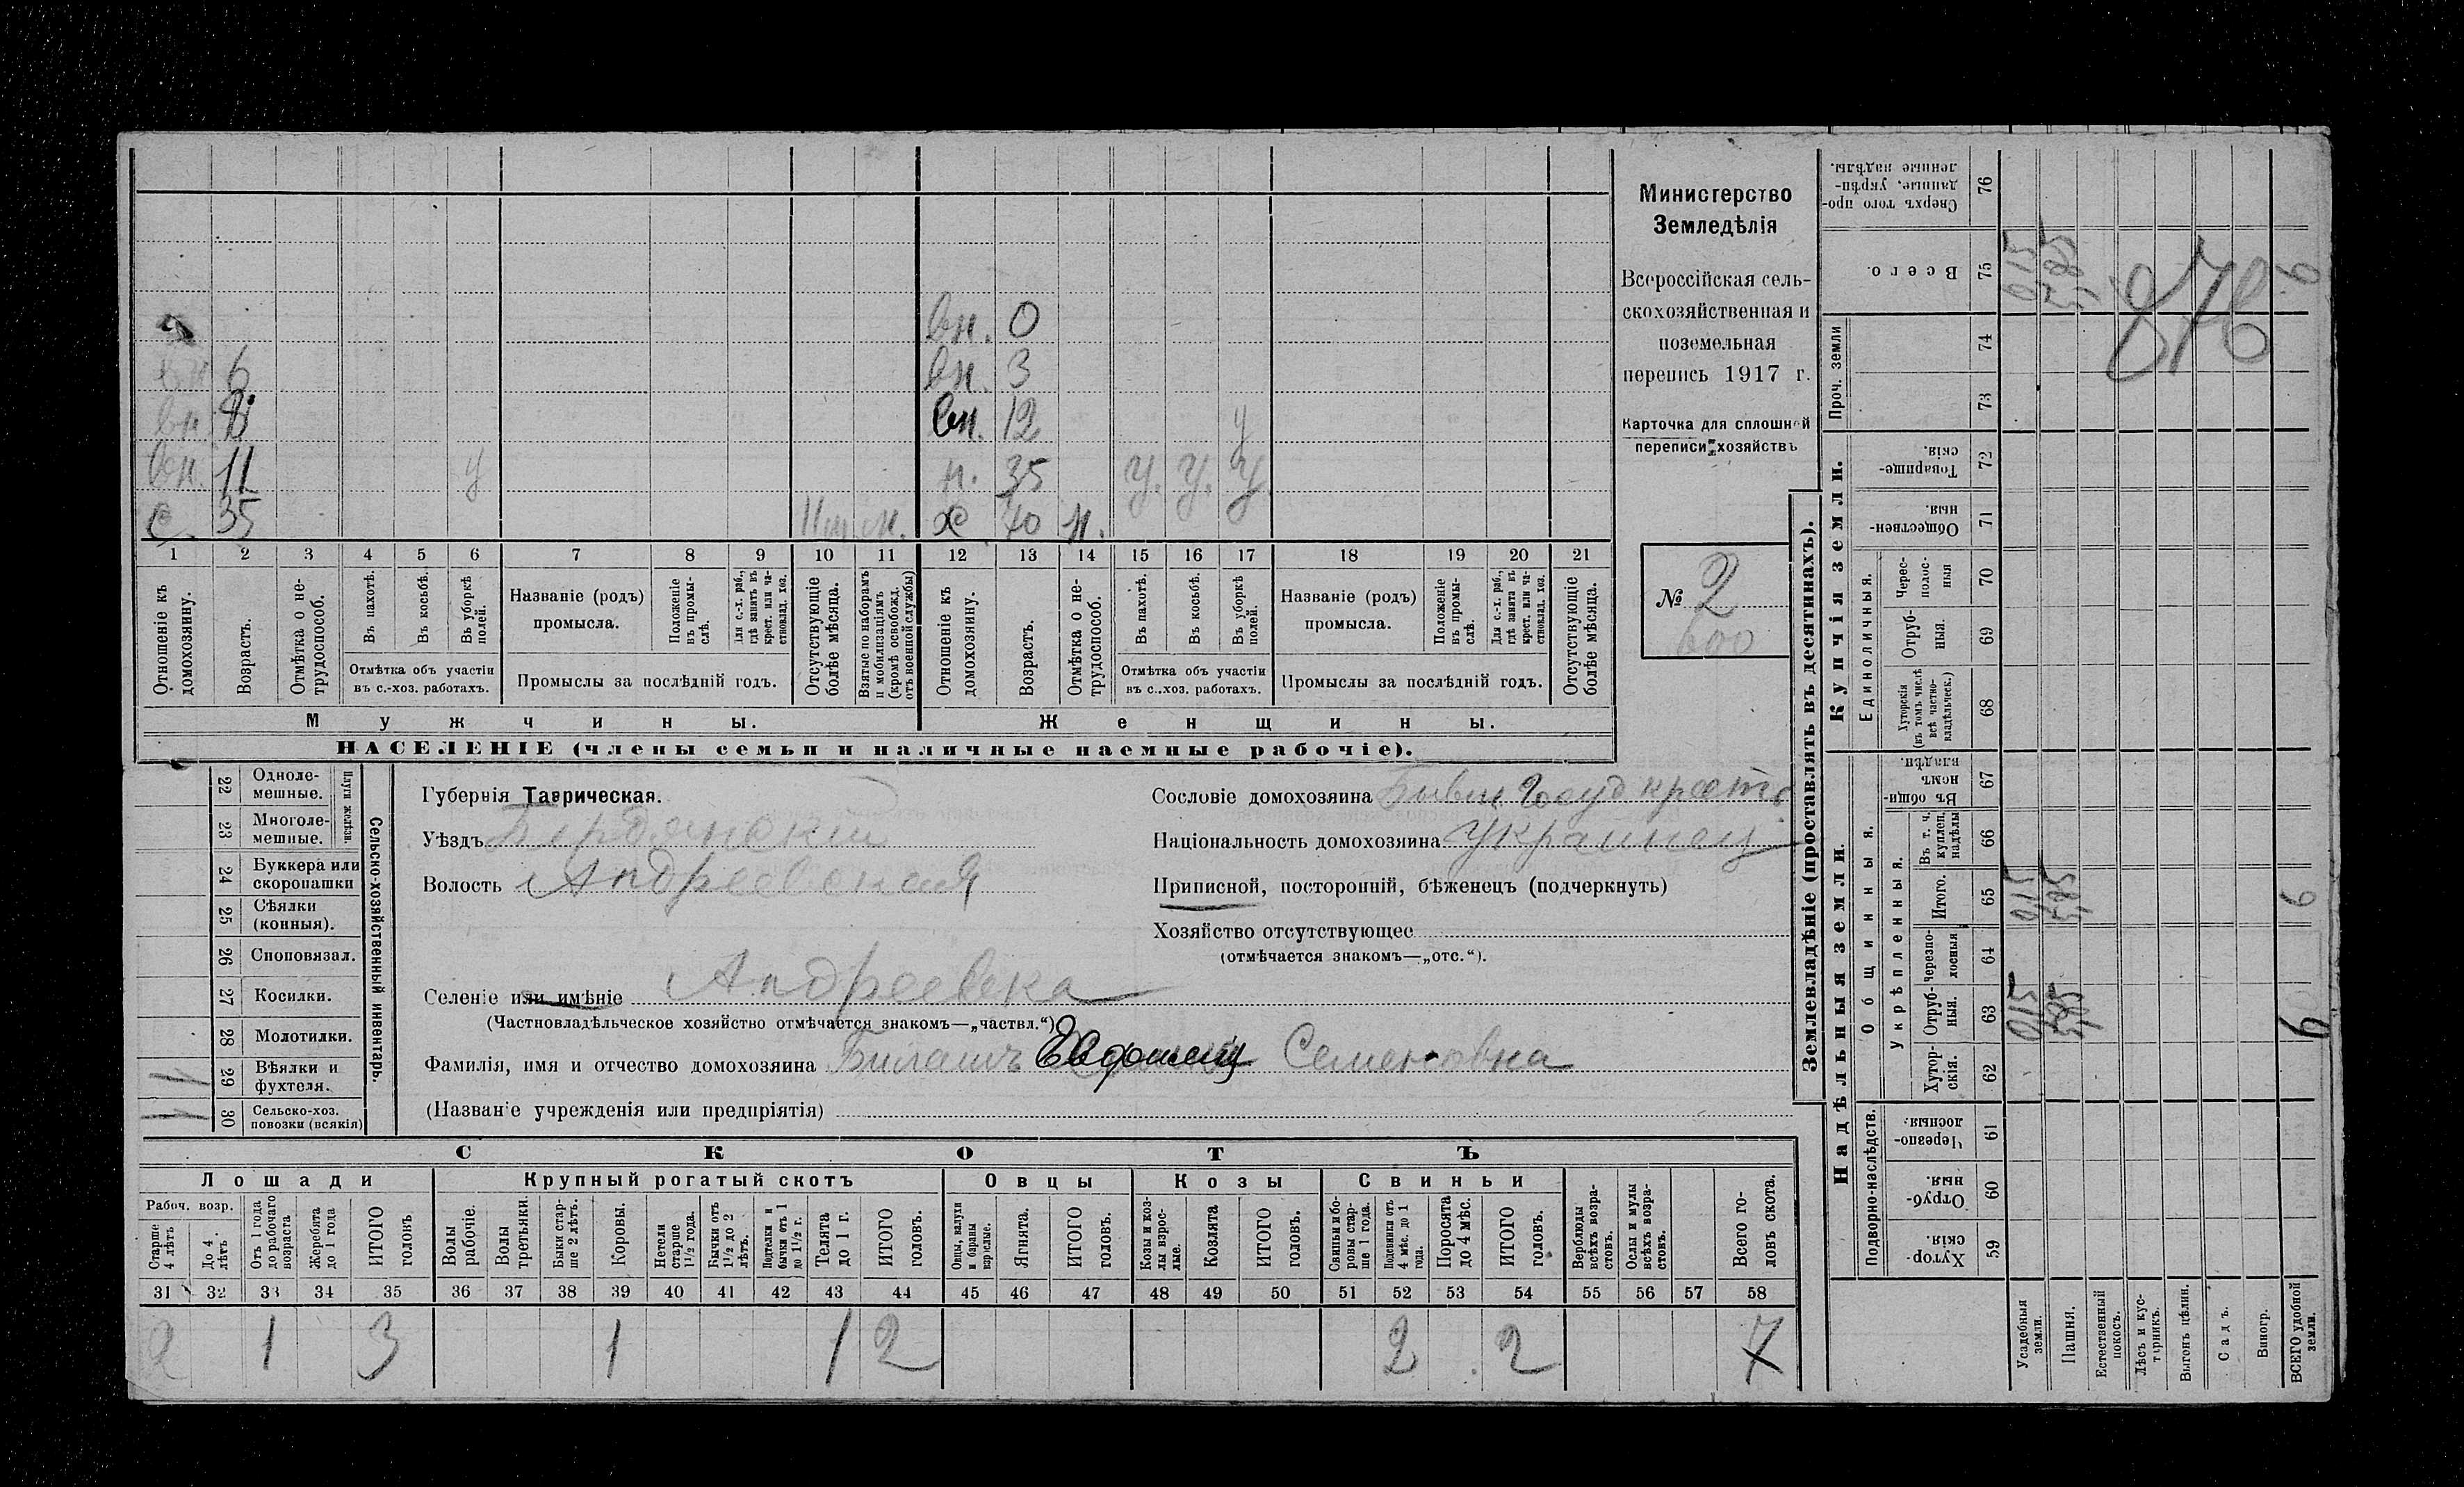 Министерство
Земледѣлія
Всероссійская сель-
скохозяйственная и
поземельная
перепись 1917 г.
Карточка для сплошной
переписи хозяйствъ
№ 2
600
вн. 0
6 вн. 3
вн. 8 вн. 12 у
вн. 11 у н. 35 у. у. у.
с. 35 м. х 40 н.
1 2 3 4 5 6 7 8 9 10 11 12 13 14 15 16 17 18 19 20 21
Отношеніе къ домохозяину.
Возрастъ.
Отмѣтка о не-трудоспособ.
Въ пахотѣ.
Въ косьбѣ.
Въ уборкѣ полей.
Отмѣтка объ участіи въ с.-хоз. работахъ.
Названіе (родъ) промысла.
Положеніе въ промы-слѣ.
Для с.-х. раб., гдѣ занятъ въ крест. или ча-ствовлад. хоз.
Промыслы за послѣдній годъ.
Отсутствующіе болѣе мѣсяца.
Взятые по наборамъ и мобилизаціямъ (кромѣ освобожд. отъ военной службы)
Отношеніе къ домохозяину.
Возрастъ.
Отмѣтка о не-трудоспособ.
Въ пахотѣ.
Въ косьбѣ.
Въ уборкѣ полей.
Отмѣтка объ участіи въ с..хоз. работахъ.
Названіе (родъ) промысла.
Положеніе въ промы-слѣ.
Для с.-х. раб., гдѣ занята въ крест. или ча-ствовлад. хоз.
Промыслы за послѣдній годъ.
Отсутствующіе болѣе мѣсяца.
Мужчины. Женщины.
НАСЕЛЕНІЕ (члены семьи и наличные наемные рабочіе).
22 Одноле-мешные.
23 Многоле-мешные.
Плуги желѣзн.
24 Буккера или скоропашки
25 Сѣялки (конныя).
26 Сноповязал.
27 Косилки.
28 Молотилки.
29 Вѣялки и фухтеля.
30 Сельско-хоз. повозки (всякія)
Сельско-хозяйственный инвентарь.
Губернія Таврическая.
Уѣздъ Бердянский
Волость Андреевская
Селеніе или имѣніе Андреевка
(Частновладѣльческое хозяйство отмѣчается знакомъ—„частвл.“)
Фамилія, имя и отчество домохозяина Билашъ Семеновна
(Названіе учрежденія или предпріятія)
Сословіе домохозяина Бывш. Госуд крест
Національность домохозяина Украинец
Приписной, посторонній, бѣженецъ (подчеркнуть)
Хозяйство отсутствующее
(отмѣчается знакомъ—„отс.“).
СКОТЪ
Лошади Крупный рогатый скотъ Овцы Козы Свиньи
Рабоч. возр.
Старше 4 лѣтъ
До 4 лѣтъ
Отъ 1 года до рабочаго возраста
Жеребята до 1 года
ИТОГО головъ
Волы рабочіе.
Волы третьяки.
Быки стар-ше 2 лѣтъ.
Коровы.
Нетели старше 1½ года.
Бычки отъ 1½ до 2 лѣтъ.
Подтелки и бычки отъ 1 до 1½ г.
Телята до 1 г.
ИТОГО головъ.
Овцы, валухи и бараны взрослые.
Ягнята.
ИТОГО головъ.
Козы и коз-лы взрос-лые.
Козлята
ИТОГО головъ.
Свиньи и бо-ровы стар-ше 1 года.
Подсвинки отъ 4 мѣс. до 1 года.
Поросята до 4 мѣс.
ИТОГО головъ.
Верблюды всѣхъ возра-стовъ.
Ослы и мулы всѣхъ возра-стовъ.
Всего го-ловъ скота.
31 32 33 34 35 36 37 38 39 40 41 42 43 44 45 46 47 48 49 50 51 52 53 54 55 56 57 58
2 1 3 1 1 2 2 2 7
Землевладѣніе (проставлять въ десятинахъ).
Купчія земли.
Надѣльныя земли.
Проч. земли
Единоличныя.
Общинныя.
Укрѣпленныя.
Подворно-наслѣдств.
Сверхъ того про-данные, укрѣп-ленные надѣлы. 76
Всего. 75 0,15 5,85 6
876
74
73
Товарище-скія. 72
Обществен-ныя. 71
Черес-полос-ныя 70
Отруб-ныя. 69
Хуторскія (въ томъ числѣ всѣ частно-владѣльческ.) 68
Въ общин-номъ владѣн. 67
Въ т. ч. куплен. надѣлы 66
Итого. 65 0,15 5,85 6
Черезпо-лосныя 64
Отруб-ныя. 63 0,15 5,85 6
Хутор-скія. 62
Черезпо-лосныя. 61
Отруб-ныя. 60
Хутор-скія. 59
Усадебныя земли.
Пашня.
Естественный покосъ.
Лѣсъ и кус-тарникъ.
Выгонъ цѣлин.
Садъ.
Виногр.
ВСЕГО удобной земли.